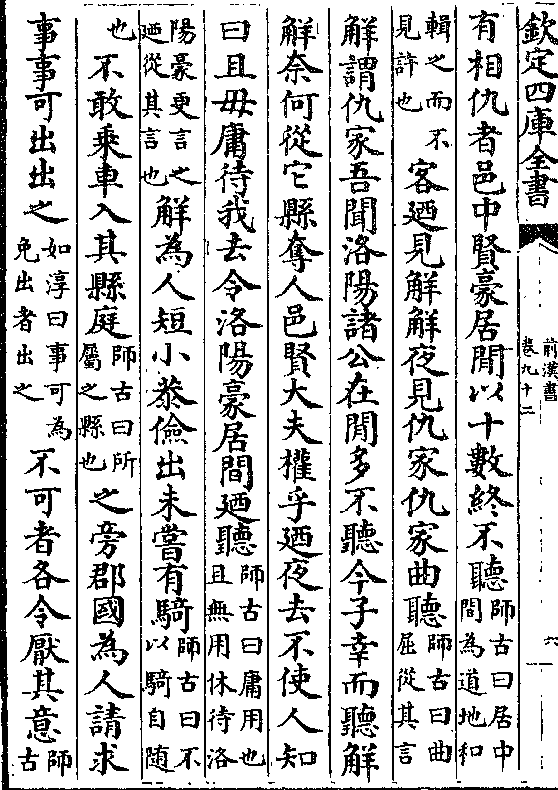 欽定四庫全書
前漢書
卷九十二
六
有相仇者邑中賢豪居閒以十數終不聽師古曰居中間為道地和
輯之而不見許也客廼見解解夜見仇家仇家曲聽師古曰曲屈從其言
解謂仇家吾聞洛陽諸公在閒多不聽今子幸而聽解
解奈何從它縣奪人邑賢大夫權乎廼夜去不使人知
曰且毋庸待我去令洛陽豪居間廼聽師古曰庸用也且無用休待洛
陽豪更言之廼從其言也解為人短小恭儉出未嘗有騎師古曰不以騎自隨
也不敢乘車入其縣庭師古曰所屬之縣也之旁郡國為人請求
事事可出出之如淳曰事可為免出者出之不可者各令厭其意師古